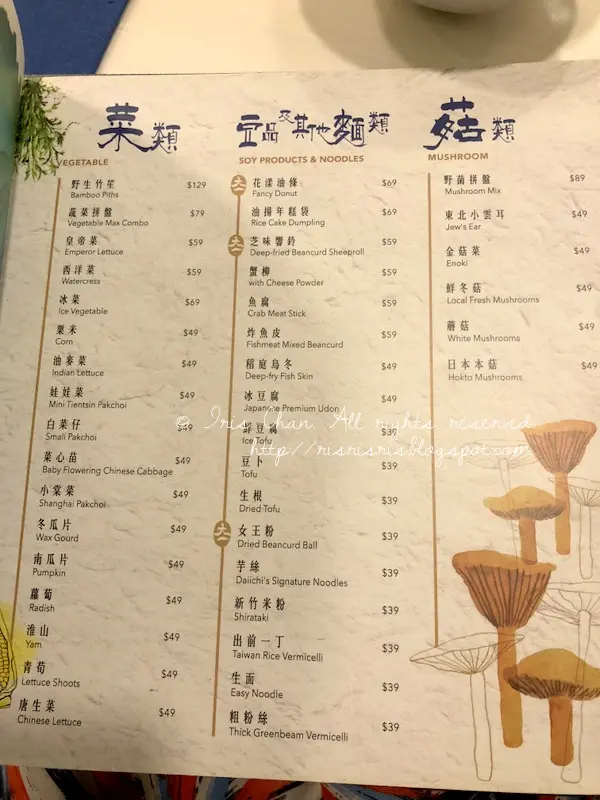 菜類
VEGETABLE
野生竹笙
Bamboo Piths
$129
蔬菜拼盤
Vegetable Max Combo
$79
皇帝菜
Emperor Lettuce
$59
西洋菜
Watercress
$59
冰菜
Ice Vegetable
$69
粟米
Corn
$49
油麥菜
Indian Lettuce
$49
娃娃菜
Mini Tientsin Pakchoi
$49
白菜仔
Small Pakchoi
$49
菜心苗
Baby Flowering Chinese Cabbage
$49
小棠菜
Shanghai Pakchoi
$49
冬瓜片
Wax Gourd
$49
南瓜片
Pumpkin
$49
蘿蔔
Radish
$49
淮山
Yam
$49
青荀
Lettuce Shoots
$49
唐生菜
Chinese Lettuce
$49
豆品及其他麵類
SOY PRODUCTS & NOODLES
花漾油條
Fancy Donut
$69
油揚年糕袋
Rice Cake Dumpling
$69
芝味響鈴
Deep-fried Beancurd Sheeproll
$59
蟹柳
with Cheese Powder
$59
魚腐
Crab Meat Stick
$59
炸魚皮
Fishmeat Mixed Beancurd
$59
稻庭烏冬
Deep-fry Fish Skin
$49
冰豆腐
Japanese Premium Udon
$49
鮮豆腐
Ice Tofu
$39
豆卜
Tofu
$39
生根
Dried Tofu
$39
女王粉
Dried Beancurd Ball
$39
芋絲
Daiichi's Signature Noodles
$39
新竹米粉
Shirataki
$39
出前一丁
Taiwan Rice Vermicelli
$39
生面
Easy Noodle
$39
粗粉絲
Thick Greenbeam Vermicelli
$39
菇類
MUSHROOM
野菌拼盤
Mushroom Mix
$89
東北小雲耳
Jew's Ear
$49
金菇菜
Enoki
$49
鮮冬菇
Local Fresh Mushrooms
$49
蘑菇
White Mushrooms
$49
日本本菇
Hokto Mushrooms
$49
© Iris Chan. All rights reserved.
http://risrisris.blogspot.com